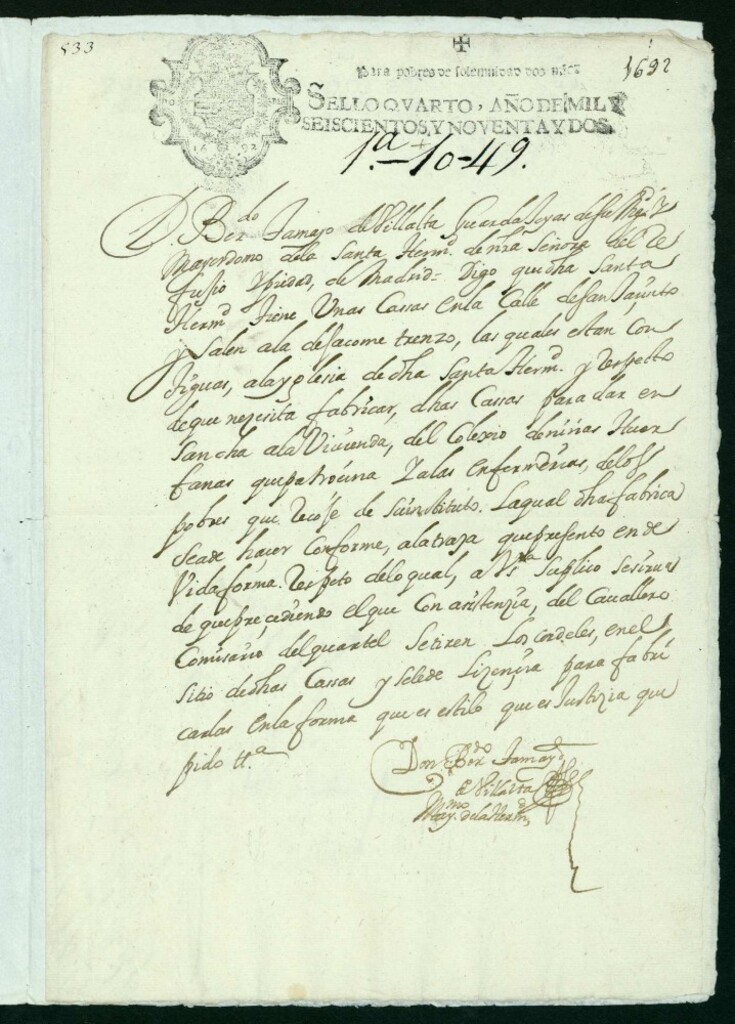 533
1692
Para pobres de solemnidad dos mrs
SELLO QVARTO, AÑO DE MIL Y
SEISCIENTOS, Y NOVENTA Y DOS.
1692
1ª-10-49.
D. Berdo Tamayo de Villalta Guarda Joyas de su Magd. Y
Mayordomo de la Santa Hermd. de nra Señora del Re
fujio Y piedad, de Madrid= Digo que dha Santa
Hermd tiene Unas Cassas en la Calle de san Jaçinto
y Salen ala de Jacome trenzo, las quales estan Con
tiguas, ala yglesia de dha Santa Herm.d y respecto
de que nezesita fabricar, dhas Cassas para dar en
sancha ala Vivienda, del Colexio de niñas Huer
fanas que patroçina Y alas enfermerias, delos
pobres que Recoje de su instituto. La qual dha fabrica
se a de hacer Conforme, ala traza que presento en de
Vida forma. Respeto delo qual, a Vs.ª Suplico se sirua
de que preçediendo el que Con asistenzia, del Cauallero
Comisario del quartel se tiren Los Cordeles, en el
sitio de dhas Cassas y se le de Lizençia para fabri
carlas en la forma que es estilo que es Justizia que
pido ttª
Don Berdo Tamayo
de Villalta
Maymo. de la Hermd